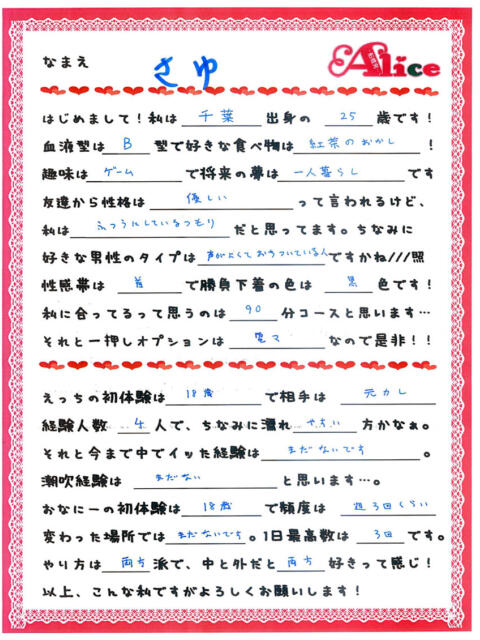 なまえ さゆ Alice
はじめまして！私は千葉出身の25歳です！
血液型はB型で好きな食べ物は紅茶のおかし！
趣味はゲームで将来の夢は一人暮らしです
友達から性格は優しいって言われるけど、
私はふつうにしているつもりだと思ってます。ちなみに
好きな男性のタイプは声がよくておちついている人ですかね///照
性感帯は首で勝負下着の色は黒色です！
私に合ってるって思うのは90分コースと思います…
それと一押しオプションは電マなので是非！！
えっちの初体験は18歳で相手は元カレ
経験人数4人で、ちなみに濡れやすい方かなぁ。
それと今まで中でイッた経験はまだないです。
潮吹経験はまだないと思います…。
おなにーの初体験は18歳で頻度は週3回くらい
変わった場所ではまだないです。1日最高数は3回です。
やり方は両方派で、中と外だと両方好きって感じ！
以上、こんな私ですがよろしくお願いします！